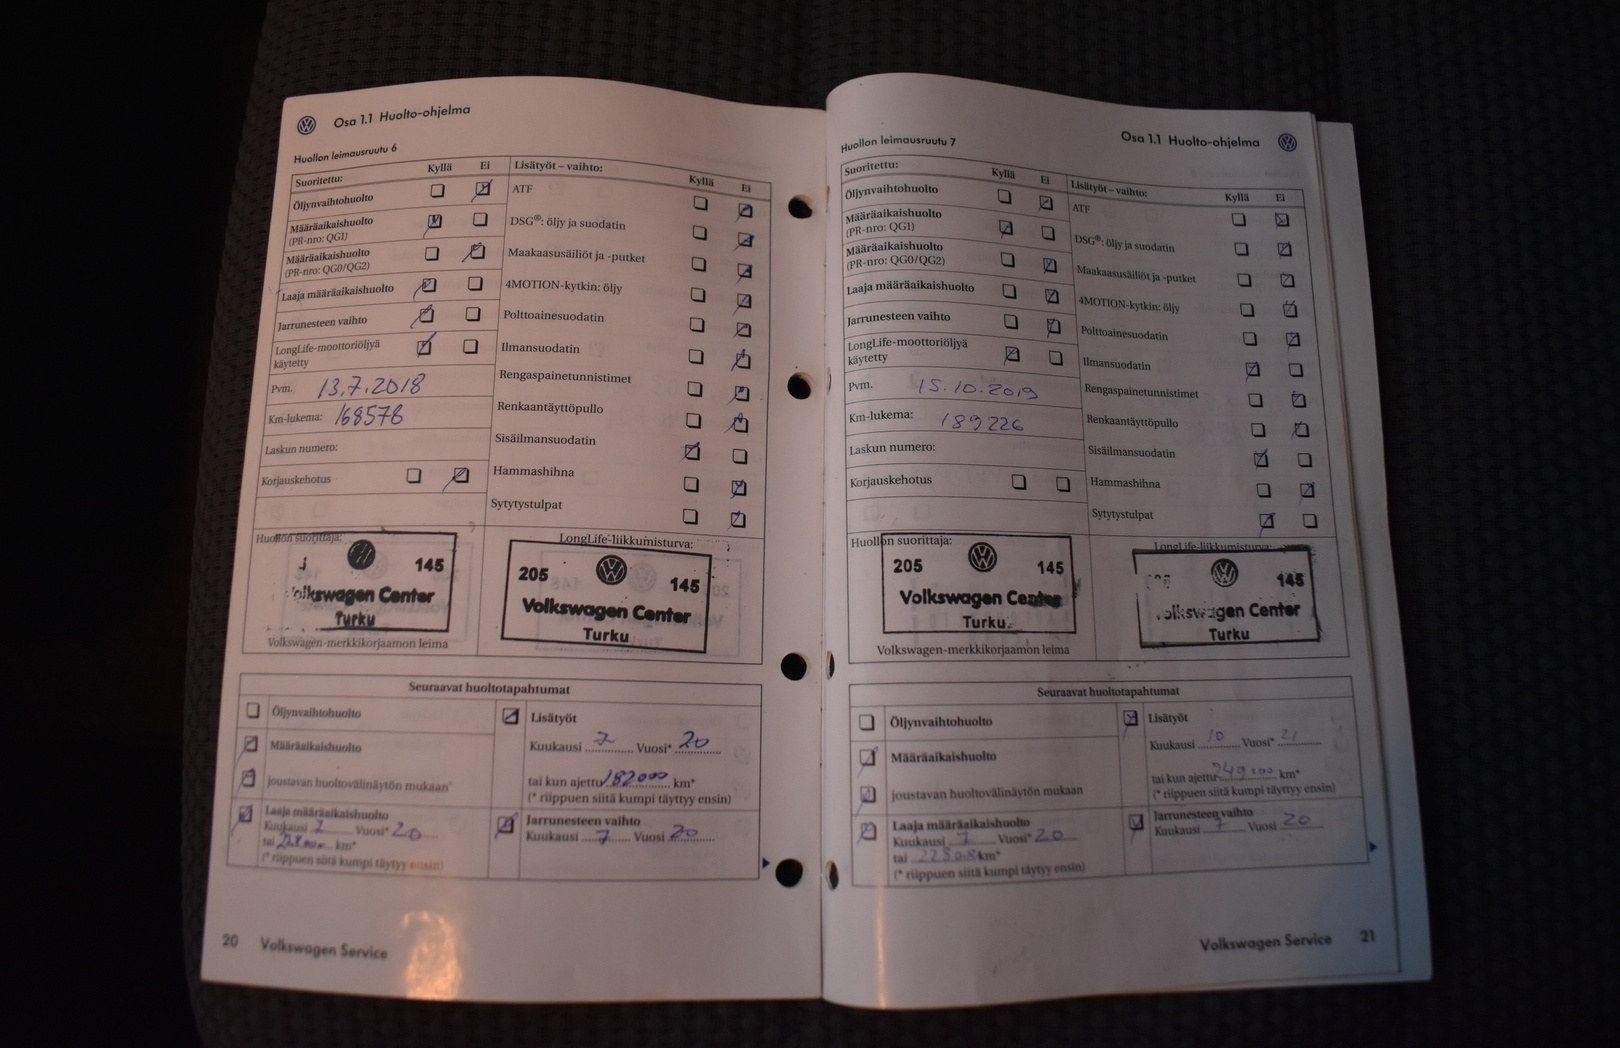 Osa 1.1 Huolto-ohjelma
Huollon leimausruutu 6
Suoritettu:
Kyllä Ei
Öljynvaihtohuolto
Määräaikaishuolto
(PR-nro: QG1)
Määräaikaishuolto
(PR-nro: QG0/QG2)
Laaja määräaikaishuolto
Jarrunesteen vaihto
LongLife-moottoriöljyä
käytetty
Pvm. 13.7.2018
Km-lukema: 168578
Laskun numero:
Korjauskehotus
Lisätyöt – vaihto:
Kyllä Ei
ATF
DSG®: öljy ja suodatin
Maakaasusäiliöt ja -putket
4MOTION-kytkin: öljy
Polttoainesuodatin
Ilmansuodatin
Rengaspainetunnistimet
Renkaantäyttöpullo
Sisäilmansuodatin
Hammashihna
Sytytystulpat
Huollon suorittaja:
145
Volkswagen Center
Turku
Volkswagen-merkkikorjaamon leima
LongLife-liikkumisturva:
205 145
Volkswagen Center
Turku
Seuraavat huoltotapahtumat
Öljynvaihtohuolto
Määräaikaishuolto
joustavan huoltovälinäytön mukaan
Laaja määräaikaishuolto
Kuukausi 7 Vuosi* 20
tai km*
(* riippuen siitä kumpi täytyy ensin)
Lisätyöt
Kuukausi 7 Vuosi* 20
tai kun ajettu 182000 km*
(* riippuen siitä kumpi täyttyy ensin)
Jarrunesteen vaihto
Kuukausi 7 Vuosi 20
20 Volkswagen Service
Osa 1.1 Huolto-ohjelma
Huollon leimausruutu 7
Suoritettu:
Kyllä Ei
Öljynvaihtohuolto
Määräaikaishuolto
(PR-nro: QG1)
Määräaikaishuolto
(PR-nro: QG0/QG2)
Laaja määräaikaishuolto
Jarrunesteen vaihto
LongLife-moottoriöljyä
käytetty
Pvm. 15.10.2019
Km-lukema: 189226
Laskun numero:
Korjauskehotus
Lisätyöt – vaihto:
Kyllä Ei
ATF
DSG®: öljy ja suodatin
Maakaasusäiliöt ja -putket
4MOTION-kytkin: öljy
Polttoainesuodatin
Ilmansuodatin
Rengaspainetunnistimet
Renkaantäyttöpullo
Sisäilmansuodatin
Hammashihna
Sytytystulpat
Huollon suorittaja:
205 145
Volkswagen Center
Turku
Volkswagen-merkkikorjaamon leima
LongLife-liikkumisturva:
145
Volkswagen Center
Turku
Seuraavat huoltotapahtumat
Öljynvaihtohuolto
Määräaikaishuolto
joustavan huoltovälinäytön mukaan
Laaja määräaikaishuolto
Kuukausi 7 Vuosi* 20
tai km*
(* riippuen siitä kumpi täytyy ensin)
Lisätyöt
Kuukausi 10 Vuosi* 21
tai kun ajettu km*
(* riippuen siitä kumpi täyttyy ensin)
Jarrunesteen vaihto
Kuukausi 7 Vuosi 20
Volkswagen Service 21